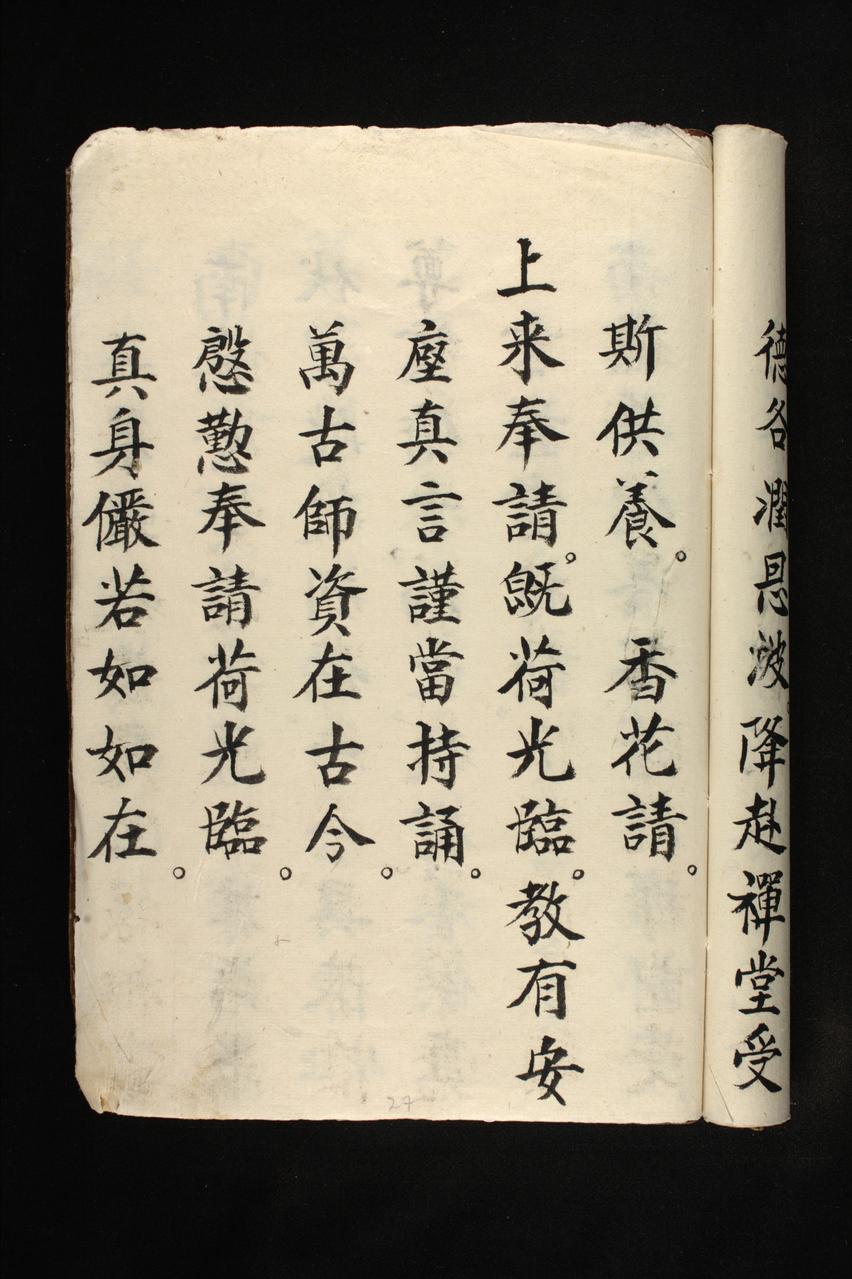 德各潤恩波。降赴禪堂受
斯供養。 香花請。
上来奉請。旣荷光臨。教有安
座真言謹當持誦。
萬古師資在古今。
慇懃奉請荷光臨。
真身儼若如如在。
27